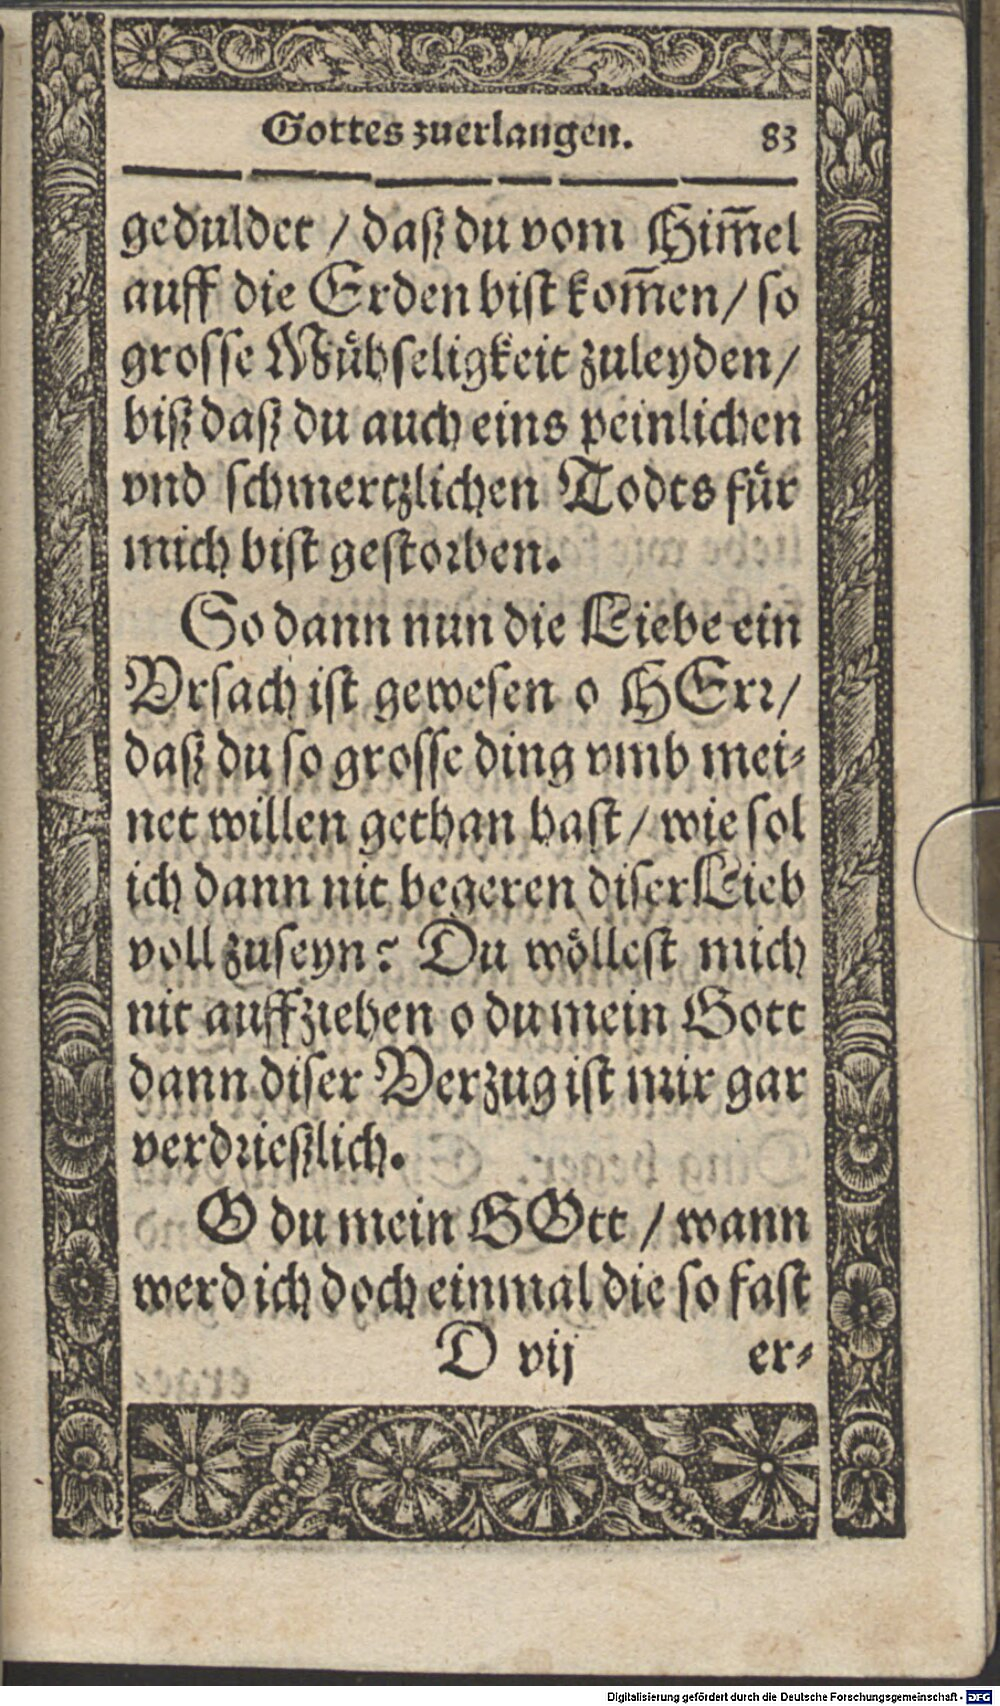 Gottes zuerlangen. 83
geduldet / daß du vom Him̅el
auff die Erden bist kom̅en / so
grosse Mühseligkeit zuleyden /
biß daß du auch eins peinlichen
vnd schmertzlichen Todts für
mich bist gestorben.
So dann nun die Liebe ein
Vrsach ist gewesen o HErr /
daß du so grosse ding vmb mei-
net willen gethan hast / wie sol
ich dann nit begeren diser Lieb
voll zuseyn? Du wöllest mich
nit auffziehen o du mein Gott
dann diser Verzug ist mir gar
verdrießlich.
O du mein GOtt / wann
werd ich doch einmal die so fast
D vij er-
Digitalisierung gefördert durch die Deutsche Forschungsgemeinschaft - DFG